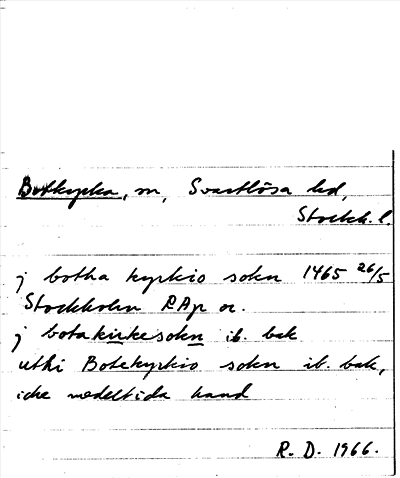 Botkyrka, sn, Svartlösa hd,
Stockh. l.
j botha kyrkio sokn 1465 26/5
Stockholm RAp or.
j botakirkesokn ib. bak
uthi Botekyrkio sokn ib. bak,
icke medeltida hand
R. D. 1966.